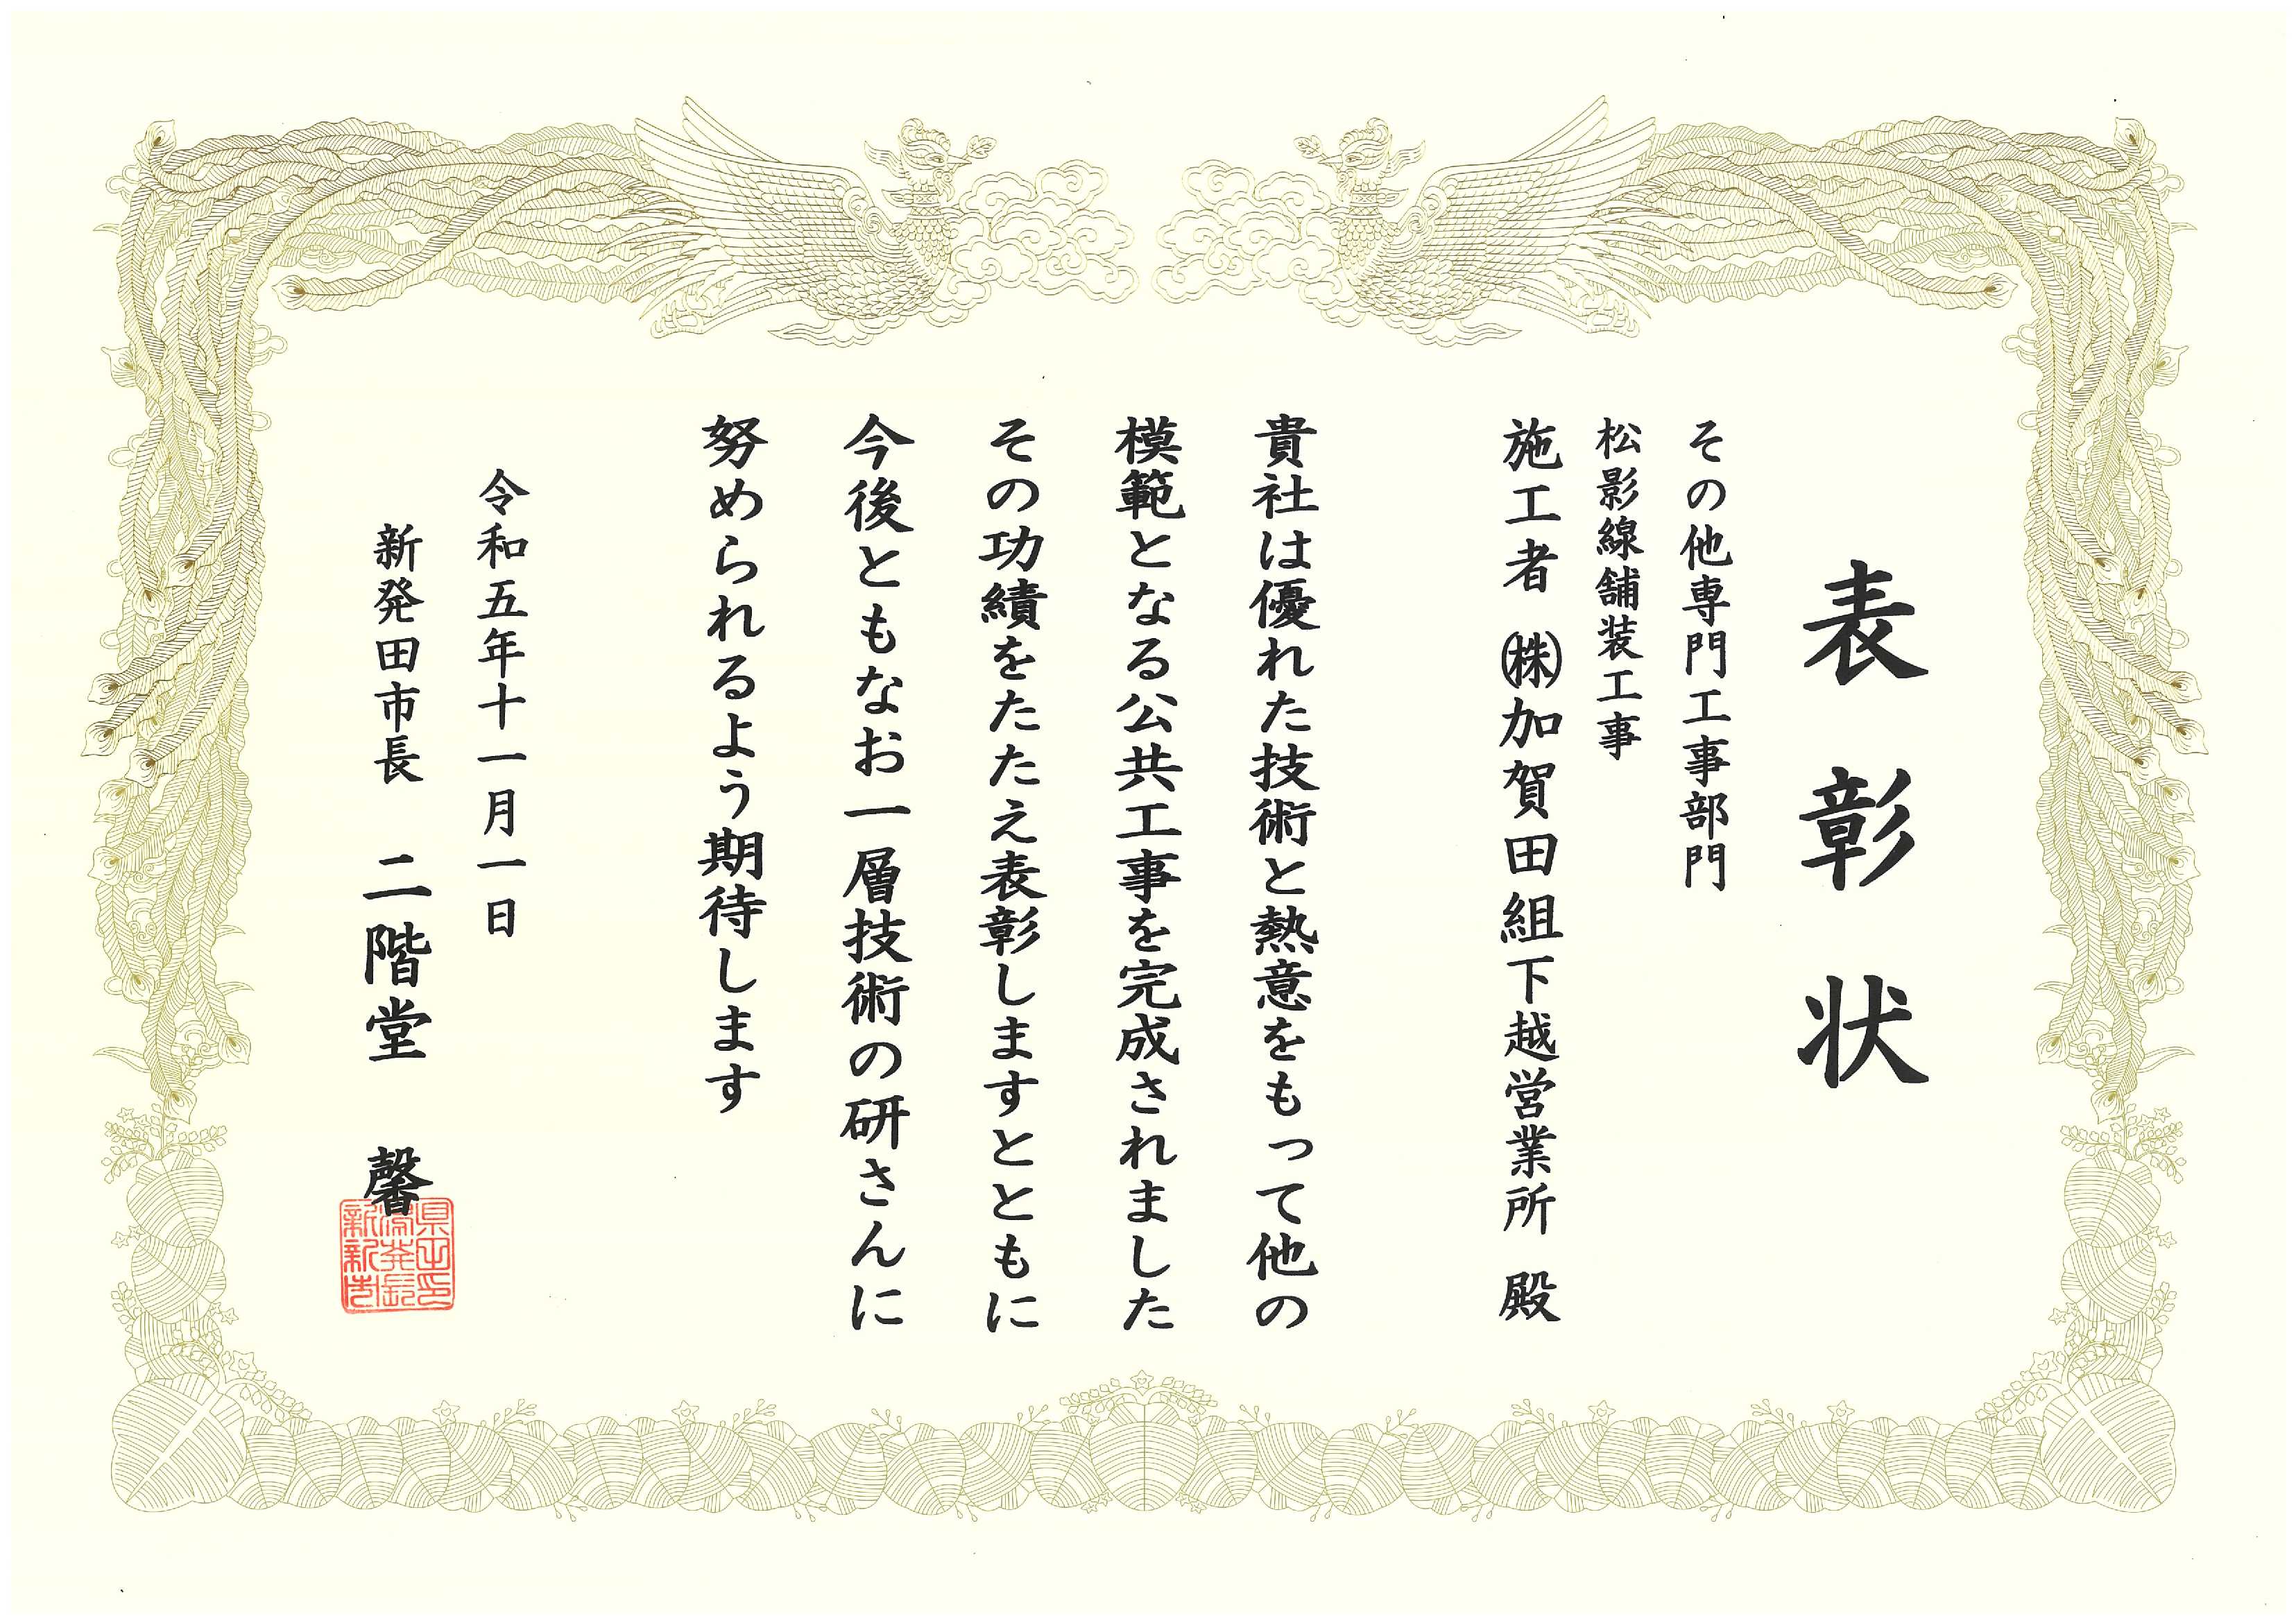 表彰状
その他専門工事部門
松影線舗装工事
施工者 ㈱加賀田組下越営業所 殿
貴社は優れた技術と熱意をもって他の
模範となる公共工事を完成されました
その功績をたたえ表彰しますとともに
今後ともなお一層技術の研さんに
努められるよう期待します
令和五年十一月一日
新発田市長 二階堂 馨